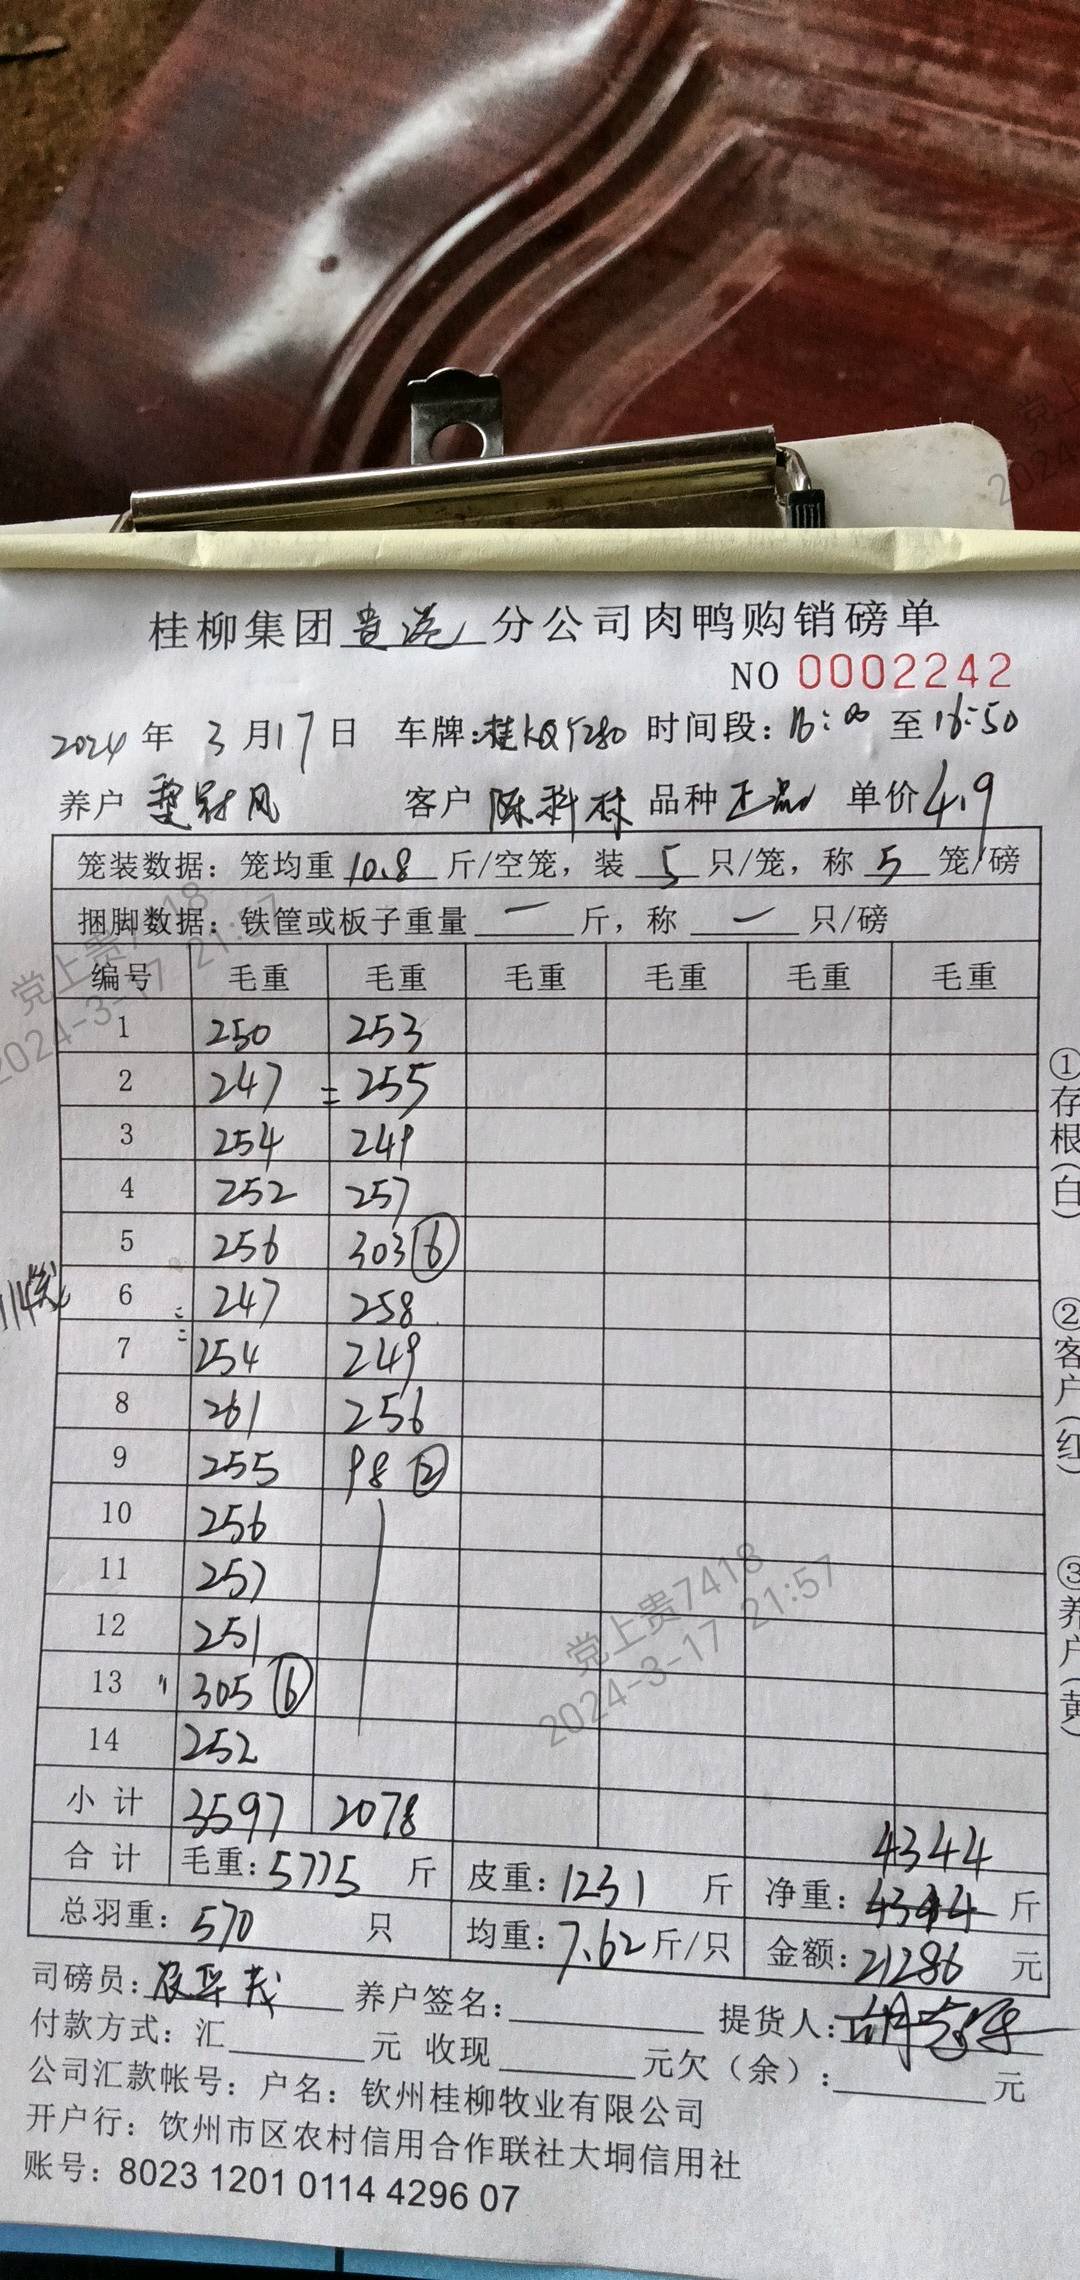 桂柳集团贵港分公司肉鸭购销磅单
NO 0002242
2024年3月17日 车牌:桂KQ5280 时间段:16:00至16:50
养户 风 客户 陈科林 品种 正品 单价4.9
笼装数据: 笼均重10.8斤/空笼, 装5只/笼, 称5笼/磅
捆脚数据: 铁筐或板子重量 一 斤, 称 一 只/磅
编号 毛重 毛重 毛重 毛重 毛重 毛重
1 250 253
2 247 = 255
3 254 249
4 252 257
5 256 303⑥
6 247 258
7 254 249
8 261 256
9 255 98②
10 256
11 257
12 251
13 " 305⑥
14 252
小计 3597 2078
4344
合计 毛重:5775斤 皮重:1231斤 净重:4344斤
总羽重:570只 均重:7.62斤/只 金额:21286元
司磅员: 养户签名: 提货人:
付款方式:汇 元 收现 元欠(余): 元
公司汇款帐号: 户名: 钦州桂柳牧业有限公司
开户行: 饮州市区农村信用合作联社大垌信用社
账号: 8023 1201 0114 4296 07
114笼
①存根(白)
②客户(红)
③养户(黄)
党上贵7418
2024-3-17 21:57
党上贵7418
2024-3-17 21:57
党上
2024